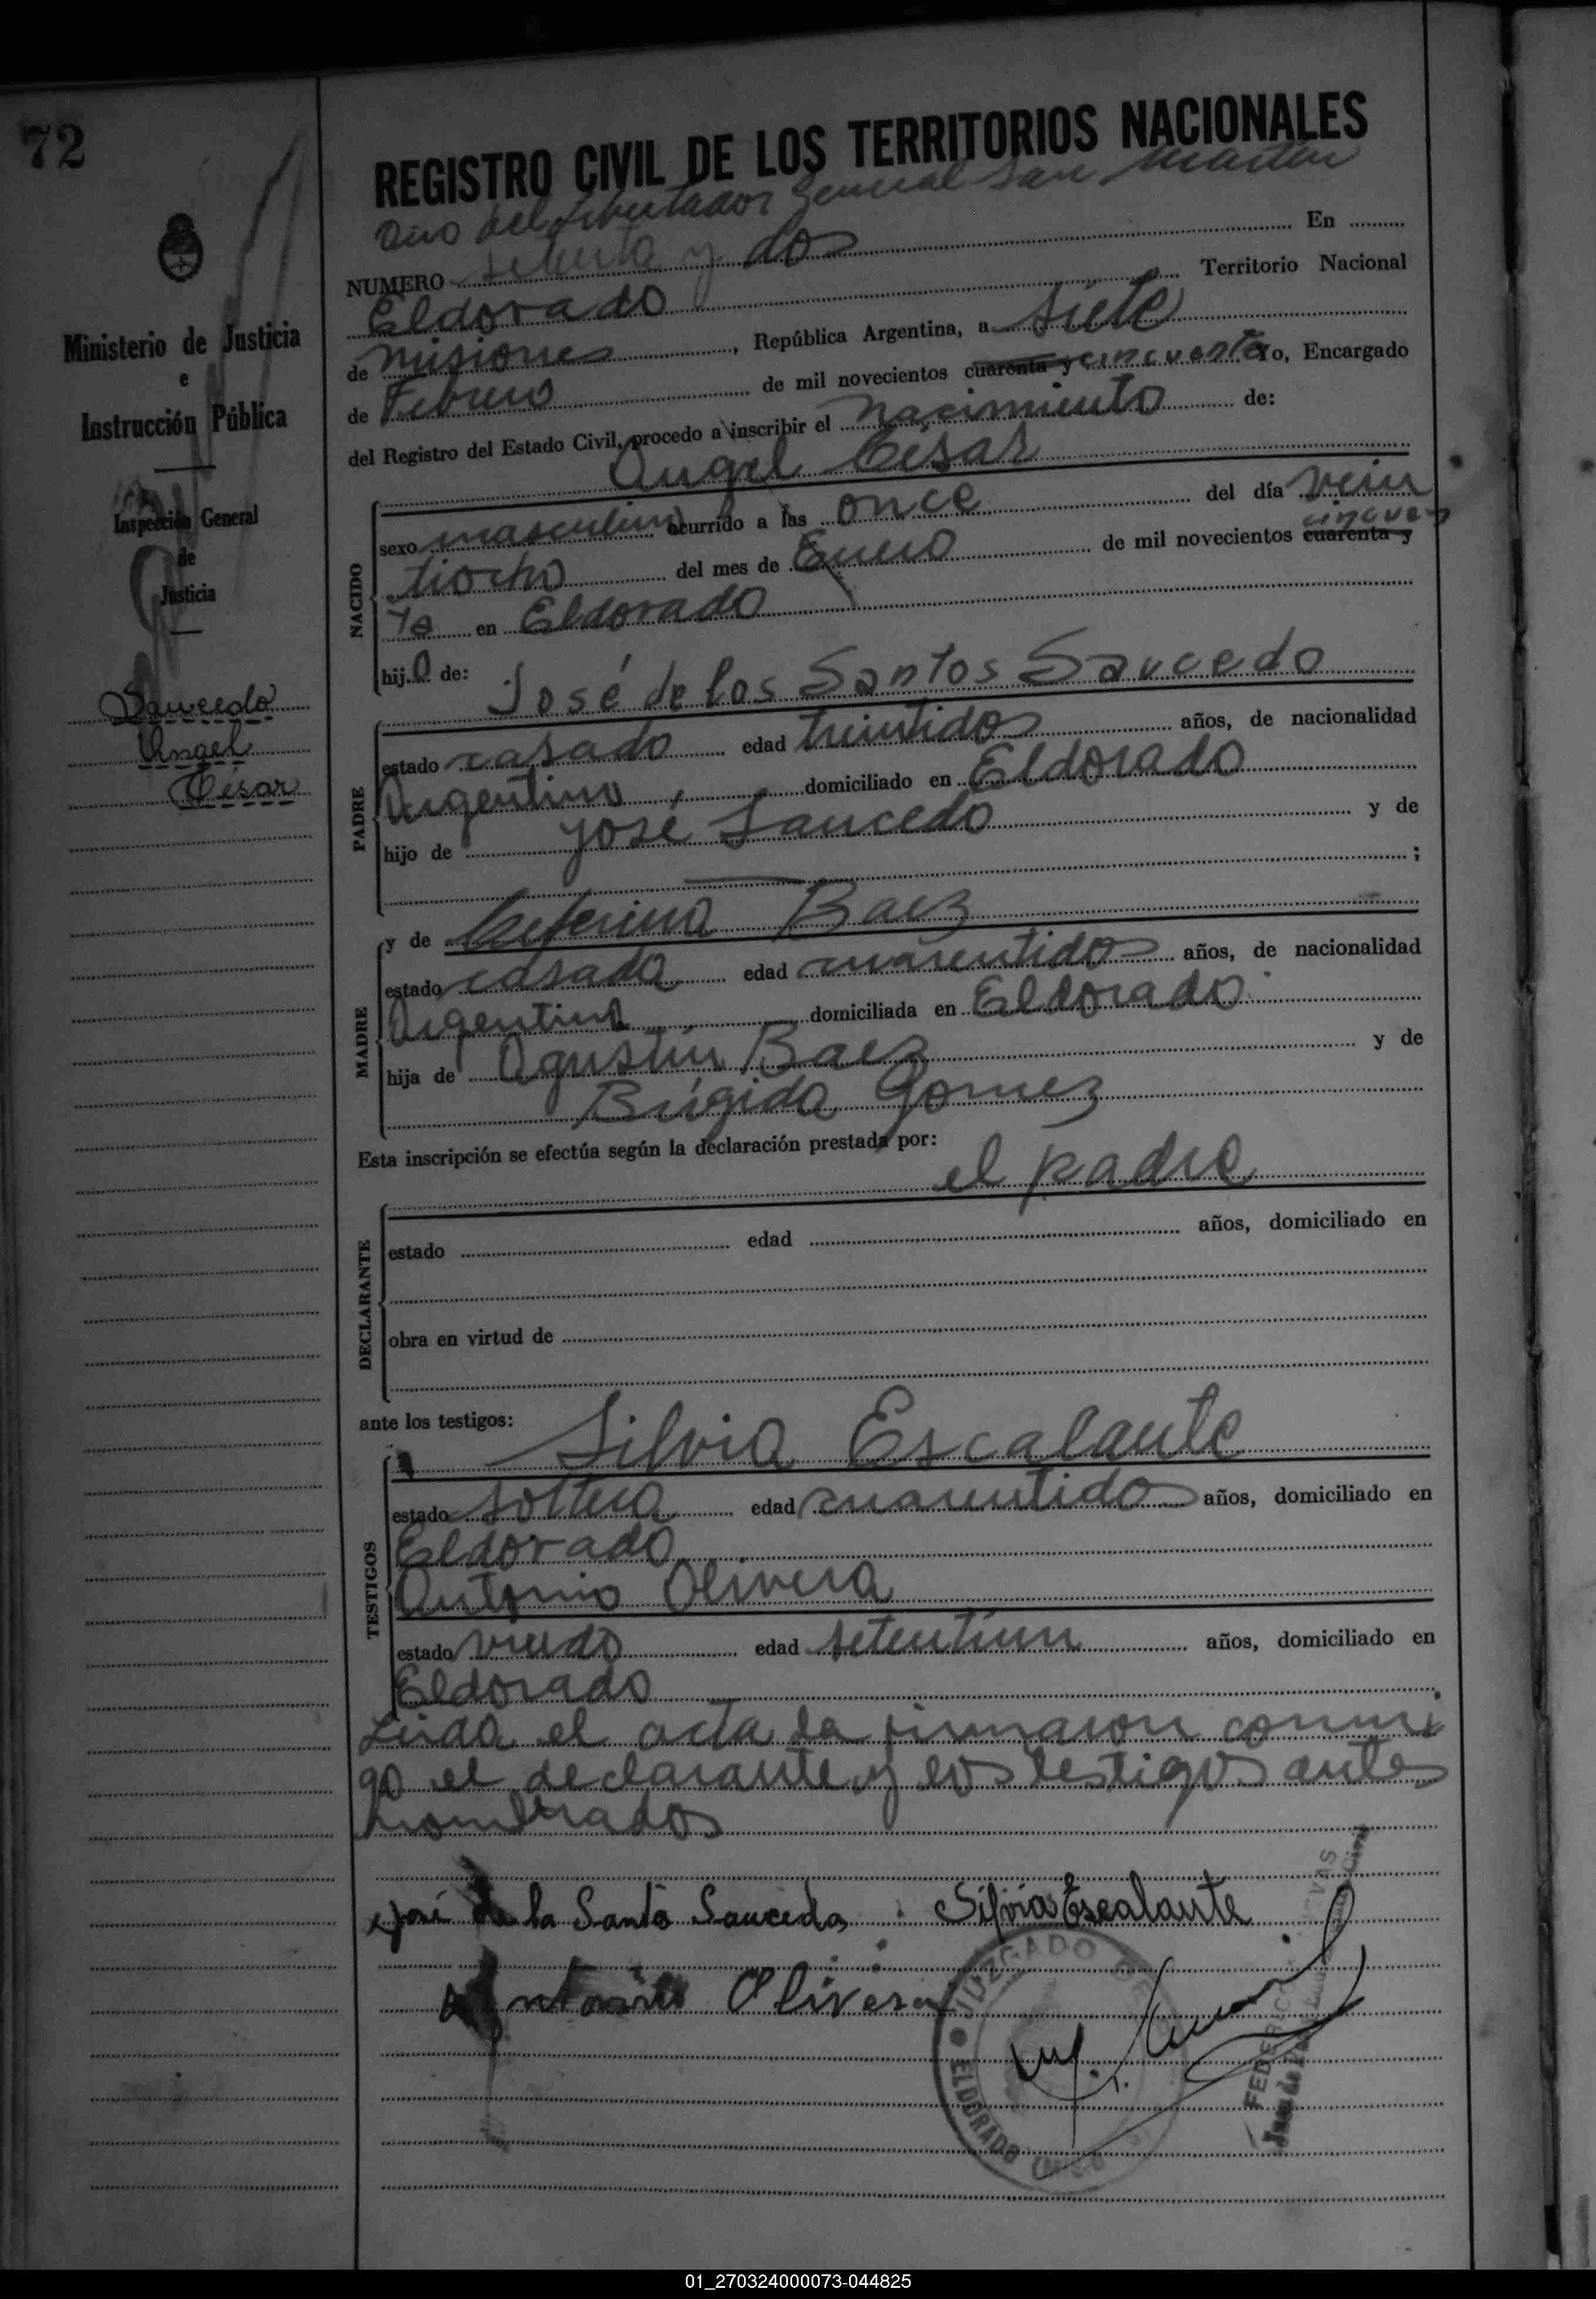 72
REGISTRO CIVIL DE LOS TERRITORIOS NACIONALES
Año del Libertador General San Martin
NUMERO setenta y dos En
Eldorado Territorio Nacional
de Misiones, República Argentina, a siete
de Febrero de mil novecientos cuarenta y cincuenta Yo, Encargado
del Registro del Estado Civil, procedo a inscribir el nacimiento de:
Angel César
NACIDO
sexo masculino ocurrido a las once del día vein
tiocho del mes de Enero de mil novecientos cuarenta y cincuen
ta en Eldorado
hijo de: José de los Santos Saucedo
PADRE
estado casado edad treintidos años, de nacionalidad
Argentino, domiciliado en Eldorado
hijo de José Saucedo y de
;
y de Ceferina Baez
MADRE
estado casada edad cuarentidos años, de nacionalidad
Argentina domiciliada en Eldorado
hija de Agustín Baez y de
Brígida Gomez
Esta inscripción se efectúa según la declaración prestada por:
el padre
DECLARANTE
estado edad años, domiciliado en
obra en virtud de
ante los testigos:
Silvia Escalante
TESTIGOS
estado soltera edad cuarentidos años, domiciliado en
Eldorado
Antonio Olivera
estado viudo edad setentiun años, domiciliado en
Eldorado
Leida el acta la firmaron conmi
go el declarante y los testigos antes
nombrados
José de la Santo Saucedo Silvia Escalante
Antonio Olivera
JUZGADO
ELDORADO
FEDERICO
Juez de
Ministerio de Justicia
e
Instrucción Pública
Inspección General
de
Justicia
Saucedo
Angel
César
01_270324000073-044825